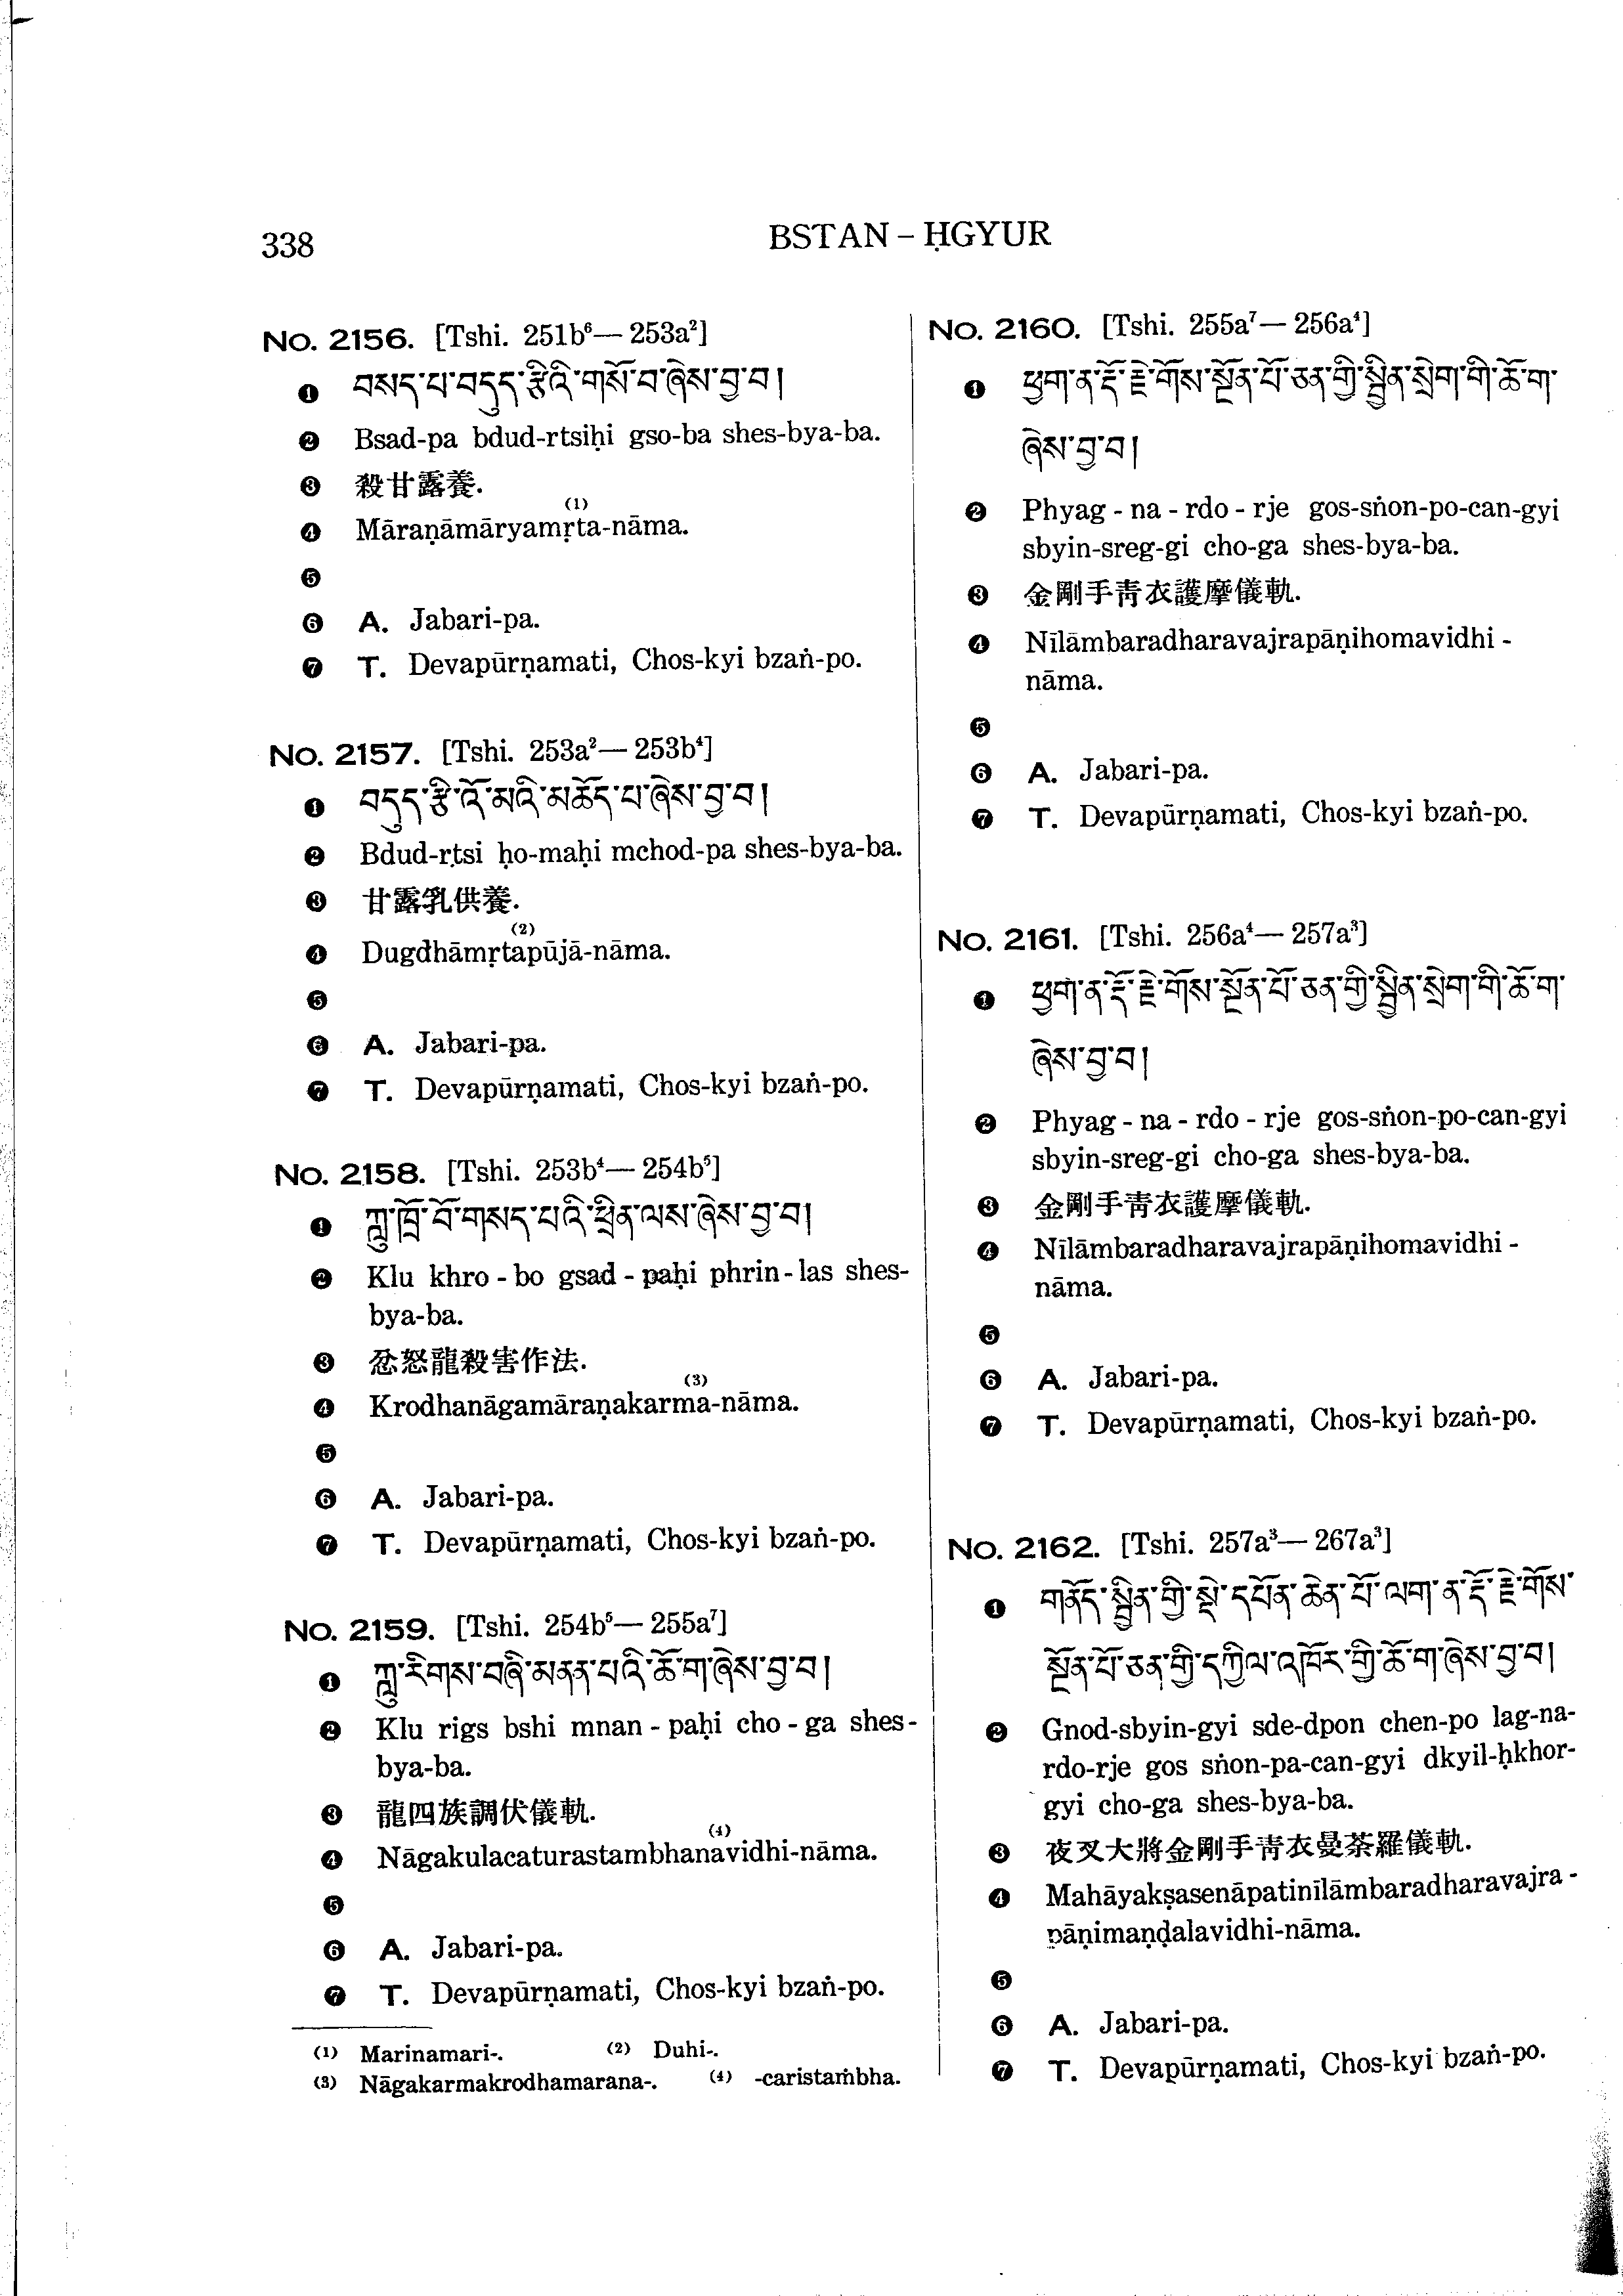 338
BSTAN – ḤGYUR
No. 2156. [Tshi. 251b⁶— 253a²]
❶ བསད་པ་བདུད་རྩིའི་གསོ་བ་ཞེས་བྱ་བ།
❷ Bsad-pa bdud-rtsiḥi gso-ba shes-bya-ba.
❸ 殺甘露養.
❹ Māraṇāmāryamṛta-nāma. (1)
❺
❻ A. Jabari-pa.
❼ T. Devapūrṇamati, Chos-kyi bzaṅ-po.
No. 2157. [Tshi. 253a²— 253b⁴]
❶ བདུད་རྩི་འོ་མའི་མཆོད་པ་ཞེས་བྱ་བ།
❷ Bdud-rtsi ḥo-maḥi mchod-pa shes-bya-ba.
❸ 甘露乳供養.
❹ Dugdhāmṛtapūjā-nāma. (2)
❺
❻ A. Jabari-pa.
❼ T. Devapūrṇamati, Chos-kyi bzaṅ-po.
No. 2158. [Tshi. 253b⁴— 254b⁵]
❶ ཀླུ་ཁྲོ་བོ་གསད་པའི་ཕྲིན་ལས་ཞེས་བྱ་བ།
❷ Klu khro - bo gsad - paḥi phrin - las shes-
bya-ba.
❸ 忿怒龍殺害作法.
❹ Krodhanāgamāraṇakarma-nāma. (3)
❺
❻ A. Jabari-pa.
❼ T. Devapūrṇamati, Chos-kyi bzaṅ-po.
No. 2159. [Tshi. 254b⁵— 255a⁷]
❶ ཀླུ་རིགས་བཞི་མནན་པའི་ཆོ་ག་ཞེས་བྱ་བ།
❷ Klu rigs bshi mnan - paḥi cho - ga shes-
bya-ba.
❸ 龍四族調伏儀軌.
❹ Nāgakulacaturastambhanavidhi-nāma. (4)
❺
❻ A. Jabari-pa.
❼ T. Devapūrṇamati, Chos-kyi bzaṅ-po.
(1) Marinamari-. (2) Duhi-.
(3) Nāgakarmakrodhamarana-. (4) -caristaṁbha.
No. 2160. [Tshi. 255a⁷— 256a⁴]
❶ ཕྱག་ན་རྡོ་རྗེ་གོས་སྔོན་པོ་ཅན་གྱི་སྦྱིན་སྲེག་གི་ཆོ་ག་
ཞེས་བྱ་བ།
❷ Phyag - na - rdo - rje gos-sṅon-po-can-gyi
sbyin-sreg-gi cho-ga shes-bya-ba.
❸ 金剛手靑衣護摩儀軌.
❹ Nīlāmbaradharavajrapāṇihomavidhi -
nāma.
❺
❻ A. Jabari-pa.
❼ T. Devapūrṇamati, Chos-kyi bzaṅ-po.
No. 2161. [Tshi. 256a⁴— 257a³]
❶ ཕྱག་ན་རྡོ་རྗེ་གོས་སྔོན་པོ་ཅན་གྱི་སྦྱིན་སྲེག་གི་ཆོ་ག་
ཞེས་བྱ་བ།
❷ Phyag - na - rdo - rje gos-sṅon-po-can-gyi
sbyin-sreg-gi cho-ga shes-bya-ba.
❸ 金剛手靑衣護摩儀軌.
❹ Nīlāmbaradharavajrapāṇihomavidhi -
nāma.
❺
❻ A. Jabari-pa.
❼ T. Devapūrṇamati, Chos-kyi bzaṅ-po.
No. 2162. [Tshi. 257a³— 267a³]
❶ གནོད་སྦྱིན་གྱི་སྡེ་དཔོན་ཆེན་པོ་ལག་ན་རྡོ་རྗེ་གོས་
སྔོན་པོ་ཅན་གྱི་དཀྱིལ་འཁོར་གྱི་ཆོ་ག་ཞེས་བྱ་བ།
❷ Gnod-sbyin-gyi sde-dpon chen-po lag-na-
rdo-rje gos sṅon-pa-can-gyi dkyil-ḥkhor-
gyi cho-ga shes-bya-ba.
❸ 夜叉大將金剛手靑衣曼荼羅儀軌.
❹ Mahāyakṣasenāpatinīlāmbaradharavajra -
pāṇimaṇḍalavidhi-nāma.
❺
❻ A. Jabari-pa.
❼ T. Devapūrṇamati, Chos-kyi bzaṅ-po.